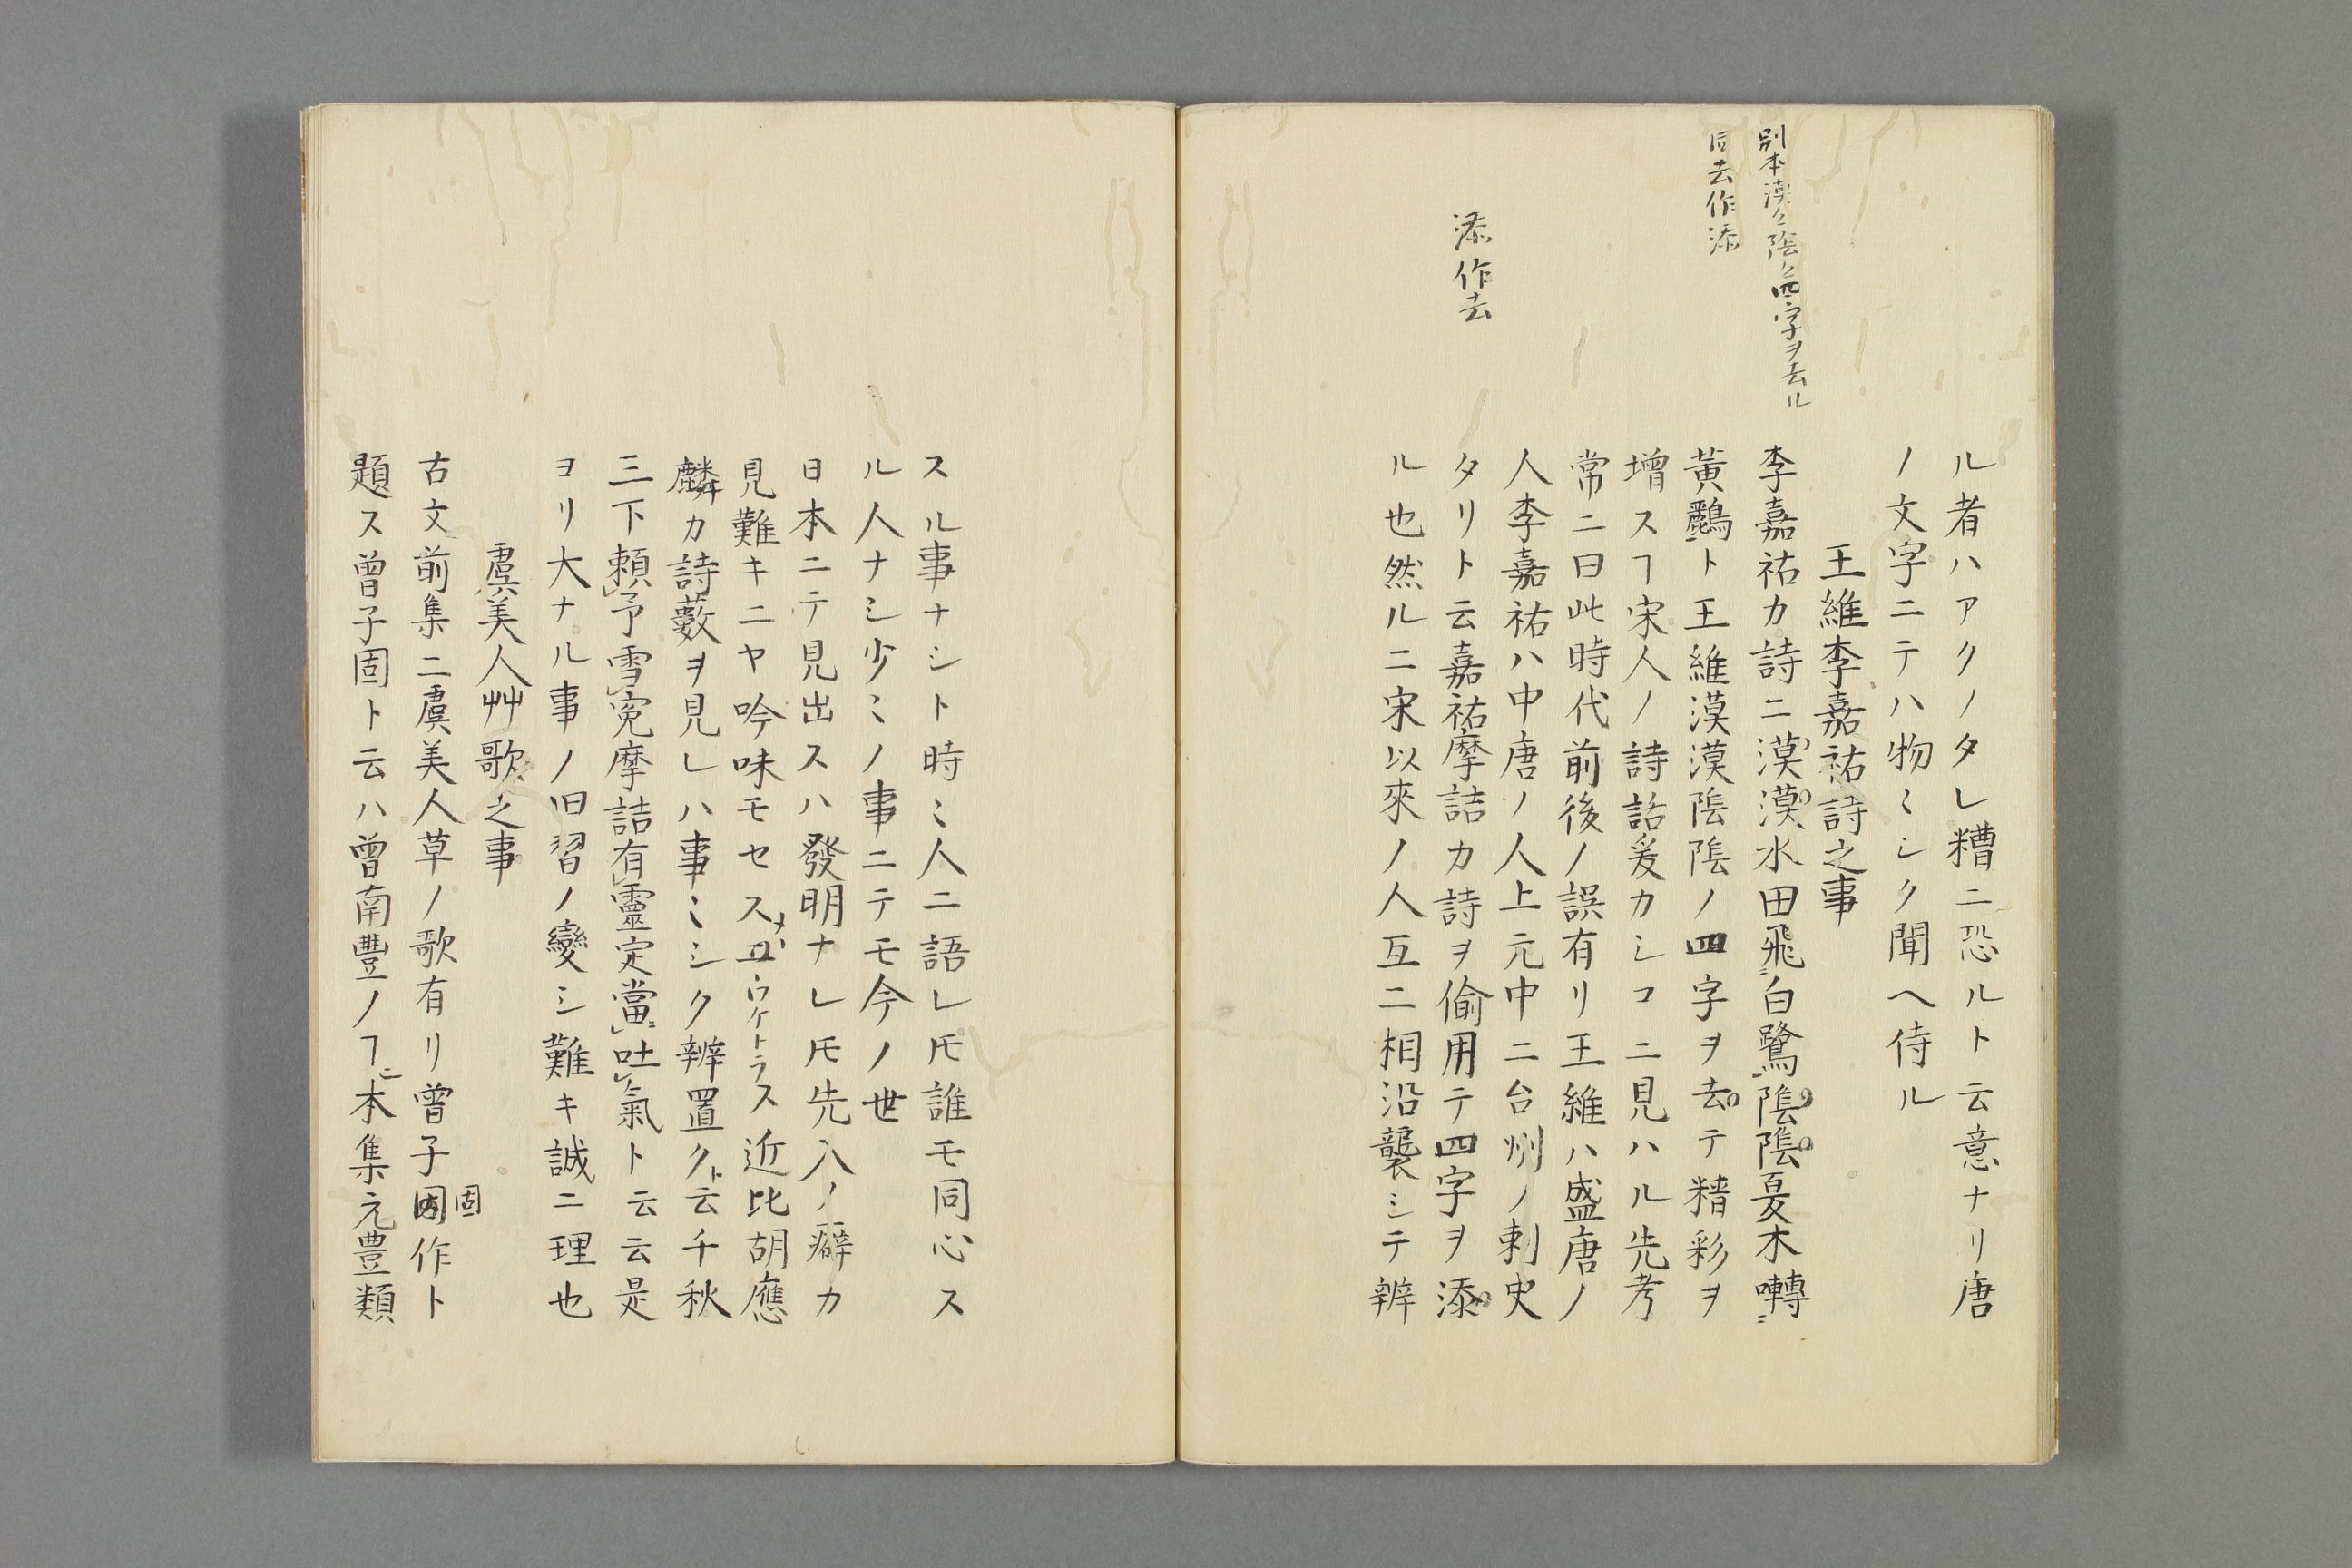 別本漠〻陰〻四字ヲ去ル
同去作添
添作去
ル者ハアクノタレ糟ニ恐ルト云意ナリ唐
ノ文字ニテハ物〻シク聞ヘ侍ル
王維李嘉祐詩之事
李嘉祐カ詩ニ漠漠水田飛白鷺陰陰夏木囀
黃鸝ト王維漠漠陰陰ノ四字ヲ去テ精彩ヲ
增スヿ宋人ノ詩話爰カシコニ見ハル先考
常ニ曰此時代前後ノ誤有リ王維ハ盛唐ノ
人李嘉祐ハ中唐ノ人上元中ニ台州ノ刺史
タリト云嘉祐摩詰カ詩ヲ偷用テ四字ヲ添
ル也然ルニ宋以來ノ人互ニ相沿襲シテ辨
スル事ナシト時〻人ニ語レ𪜈誰モ同心ス
ル人ナシ少〻ノ事ニテモ今ノ世
日本ニテ見出スハ發明ナレ𪜈先入ノ癖カ
見難キニヤ吟味モセスヌハウケトラス近比胡應
麟カ詩藪ヲ見レハ事〻シク辨置クト云千秋
三下賴予雪寃摩詰有靈定當吐氣ト云云是
ヨリ大ナル事ノ旧習ノ變シ難キ誠ニ理也
虞美人艸歌之事
古文前集ニ虞美人草ノ歌有リ曾子固作ト
固
題ス曾子固ト云ハ曾南豐ノヿニ本集元豊類